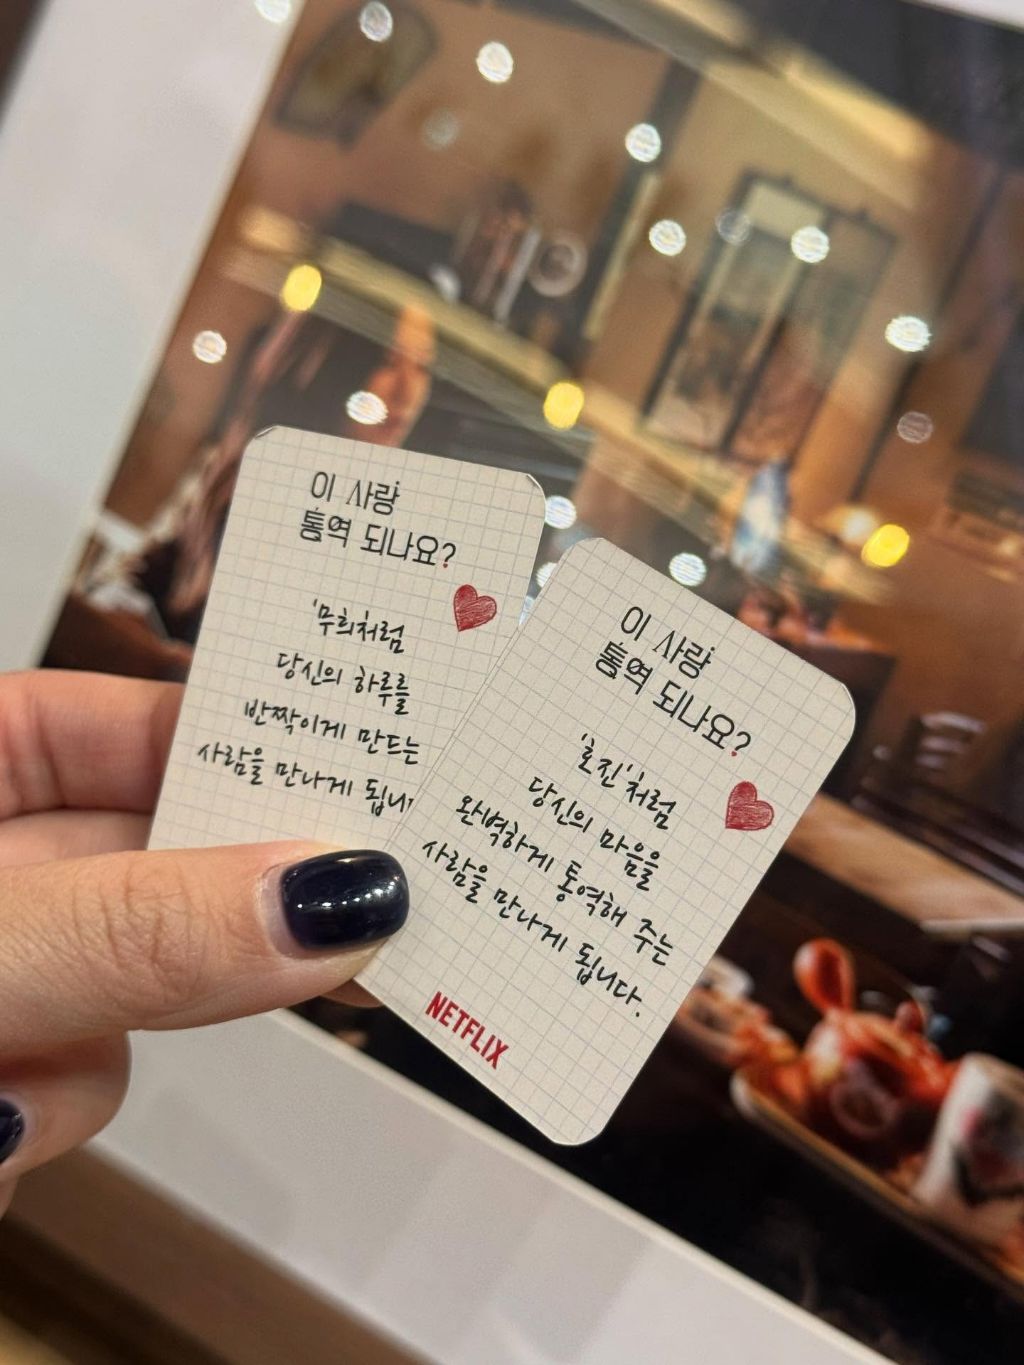 이 사랑
통역 되나요?
'무희처럼
당신의 하루를
반짝이게 만드는
사람을 만나게 됩니
이 사랑
통역 되나요?
'호진'처럼
당신의 마음을
완벽하게 통역해 주는
사람을 만나게 됩니다.
NETFLIX